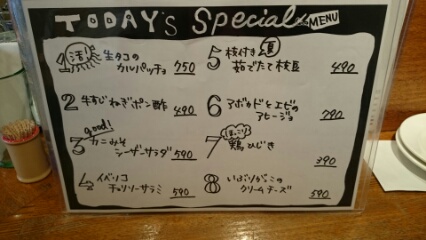 TODAY's Special MENU
1 活 生タコの
カルパッチョ 750
2 牛すじねぎポン酢 490
good!
3 カニみそ
シーザーサラダ 590
4 イベリコ
チョリソーサラミ 590
5 枝付き 夏
茹でたて枝豆 490
6 アボカドとエビの
アヒージョ 790
ほっこり
7 鶏ひじき
390
8 いぶりがっこの
クリームチーズ 590